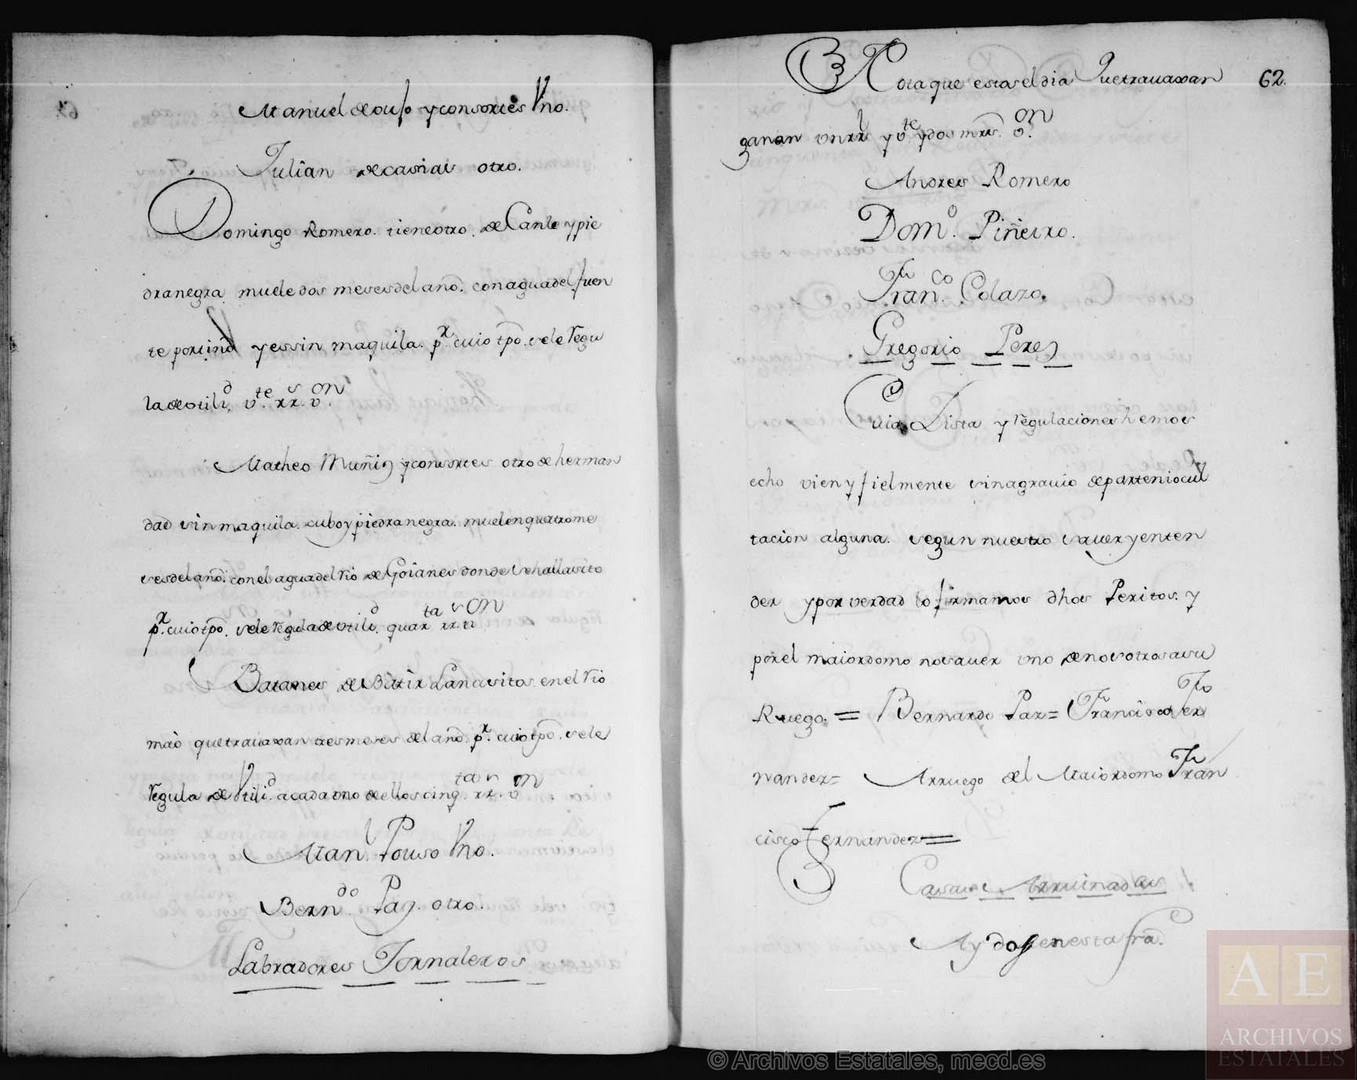 Manuel de ouso y consortes Vno.
Julian de casias otro.
Domingo Romero. tiene otro. de Canle y pie
dra negra muele dos meses del año. con agua del fuen
te por ind y es sin maquila. pr. cuio tpo. se le regu
la de utilid. vte. rs. von.
Matheo Muñiz y consortes otro de herman
dad sin maquila. cubo y piedra negra. muelen quatro me
ses del año. con el agua del rio de Goianes donde se halla sito
pr. cuio tpo. se le regula de utilid. quarta rs. von
Batanes de Batir Lana sitos en el rio
maio que trauaxan tres meses del año. pr. cuio tpo. se le
regula de Vtilid. a cada uno de ellos cinqta. rs. von.
Manl. Pouso Vno.
Berndo. Paz. otro.
Labradores Jornaleros
Nota que estas el dia Que trauaxan 62.
ganan un rl. y vte. y dos mrs. von.
Andres Romero
Domo. Piñeiro.
Franco. Colazo.
Gregorio Perez
Cuia Lista y regulaciones hemos
echo vien y fielmente sin agrauio de parte ni ocul
tacion alguna. segun nuestro sauer y enten
der y por verdad lo firmamos dhos Peritos. y
por el maiordomo no sauer uno de nosotros a su
Ruego. = Bernardo Paz = Francisco Fer
nandez = A rruego del Maiordomo Fran
cisco Fernandez =
Casas Arruinadas
Ay dos en esta fra.
AE
ARCHIVOS
ESTATALES
© Archivos Estatales, mecd.es